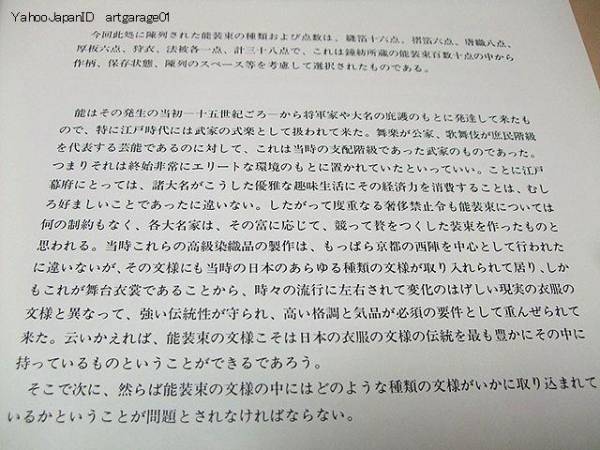 YahooJapanID artgarage01
今回此処に陳列された能装束の種類および点数は、縫箔十六点、摺箔六点、唐織八点、
厚板六点、狩衣、法被各一点、計三十八点で、これは鐘紡所蔵の能装束百数十点の中から
作柄、保存状態、陳列のスペース等を考慮して選択されたものである。
能はその発生の当初―十五世紀ごろ―から将軍家や大名の庇護のもとに発達して来たも
ので、特に江戸時代には武家の式楽として扱われて来た。舞楽が公家、歌舞伎が庶民階級
を代表する芸能であるのに対して、これは当時の支配階級であった武家のものであった。
つまりそれは終始非常にエリートな環境のもとに置かれていたといっていい。ことに江戸
幕府にとっては、諸大名がこうした優雅な趣味生活にその経済力を消費することは、むし
ろ好ましいことであったに違いない。したがって度重なる奢侈禁止令も能装束については
何の制約もなく、各大名家は、その富に応じて、競って贅をつくした装束を作ったものと
思われる。当時これらの高級染織品の製作は、もっぱら京都の西陣を中心として行われた
に違いないが、その文様にも当時の日本のあらゆる種類の文様が取り入れられて居り、しか
もこれが舞台衣裳であることから、時々の流行に左右されて変化のはげしい現実の衣服の
文様と異なって、強い伝統性が守られ、高い格調と気品が必須の要件として重んぜられて
来た。云いかえれば、能装束の文様こそは日本の衣服の文様の伝統を最も豊かにその中に
持っているものということができるであろう。
そこで次に、然らば能装束の文様の中にはどのような種類の文様がいかに取り込まれて
いるかということが問題とされなければならない。